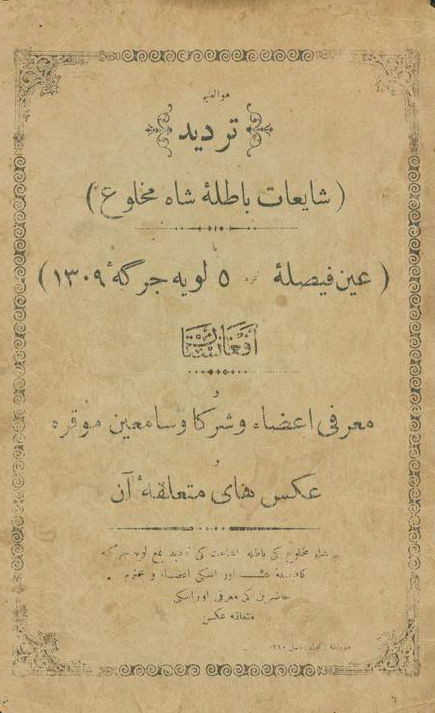 هوالعلیم
تردید
(شایعات باطلهٔ شاه مخلوع)
با
(عین فیصلهٔ نمره ٥ لویه جرگهٔ ١٣٠٩)
افغانستان
و
معرفی اعضاء و شرکا و سامعین موقره
و
عکس های متعلقهٔ آن
شاه مخلوع کی باطله اشاعت کی تردید مع لویه جرگه
کا فیصله اور اسکی اعضاء و
حاضرین کی معرفی اور اسکی
متعلقه عکس